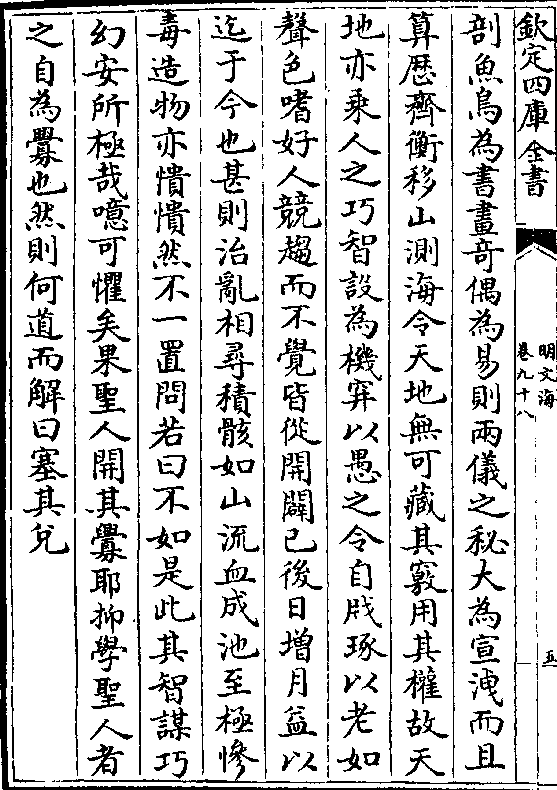 欽定四庫全書
明文海
卷九十八
五
剖魚鳥為書畫奇偶為易則兩儀之秘大為宣洩而且
算歴齊衡移山測海令天地無可藏其竅用其權故天
地亦乗人之巧智設為機穽以愚之令自戕琢以老如
聲色嗜好人競趨而不覺皆從開闢已後日增月益以
迄于今也甚則治亂相尋積骸如山流血成池至極慘
毒造物亦憒憒然不一置問若曰不如是此其智謀巧
幻安所極哉噫可懼矣果聖人開其釁耶抑學聖人者
之自為釁也然則何道而解曰塞其兌